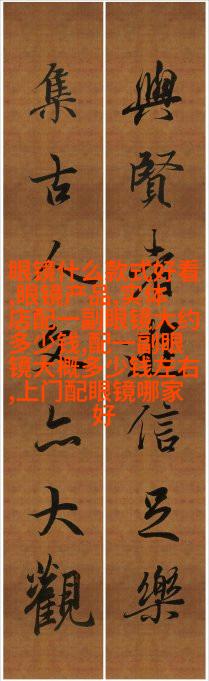 與賢者遊信足樂
集古人文亦大觀
眼镜什么款式好看
,眼镜产品,实体
店配一副眼镜大约
多少钱,配一副眼
镜大概多少钱左右
,上门配眼镜哪家
好